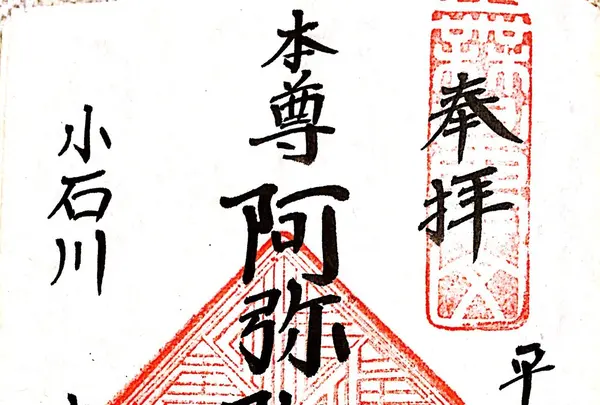 奉拝
平
本尊
阿弥
小石川